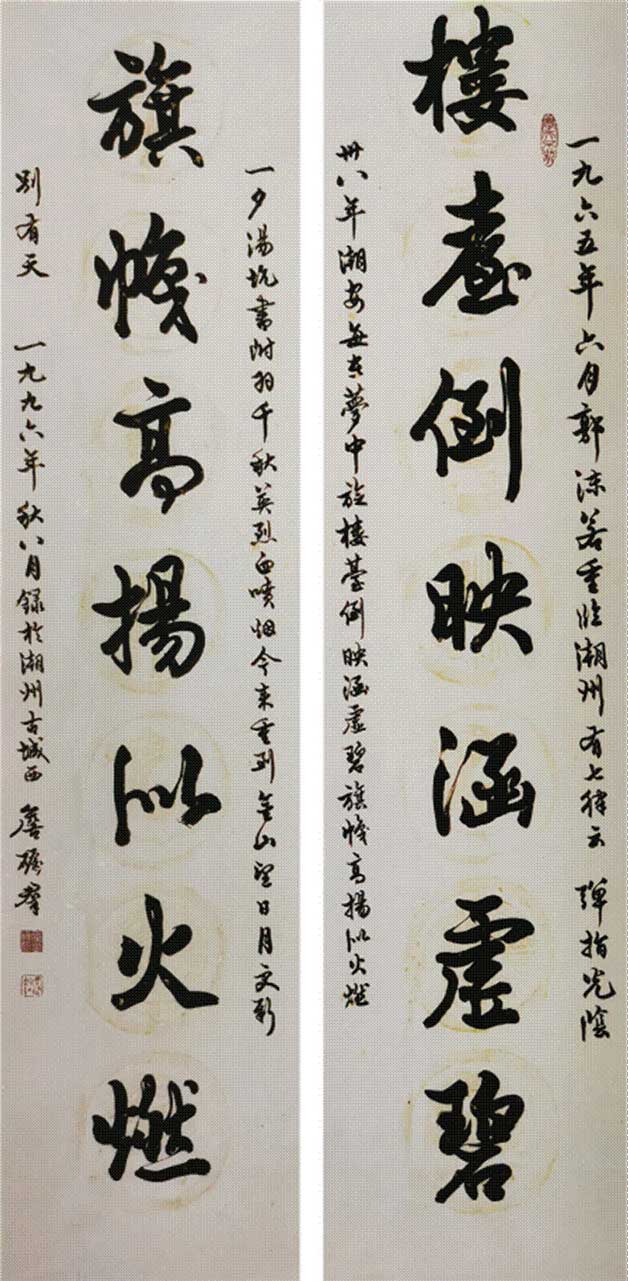 一九六五年六月郭沫若重临潮州有七律云 彈指光陰
樓臺倒映涵虛碧
卅八年潮安每在夢中旋樓臺倒映涵虛碧旗幟高揚似火燃
一夕湯坑書附羽千秋英烈血噴烟今來重到金山望日月更新
旗幟高揚似火燃
別有天 一九九六年秋八月録於潮州古城西 詹礪羣